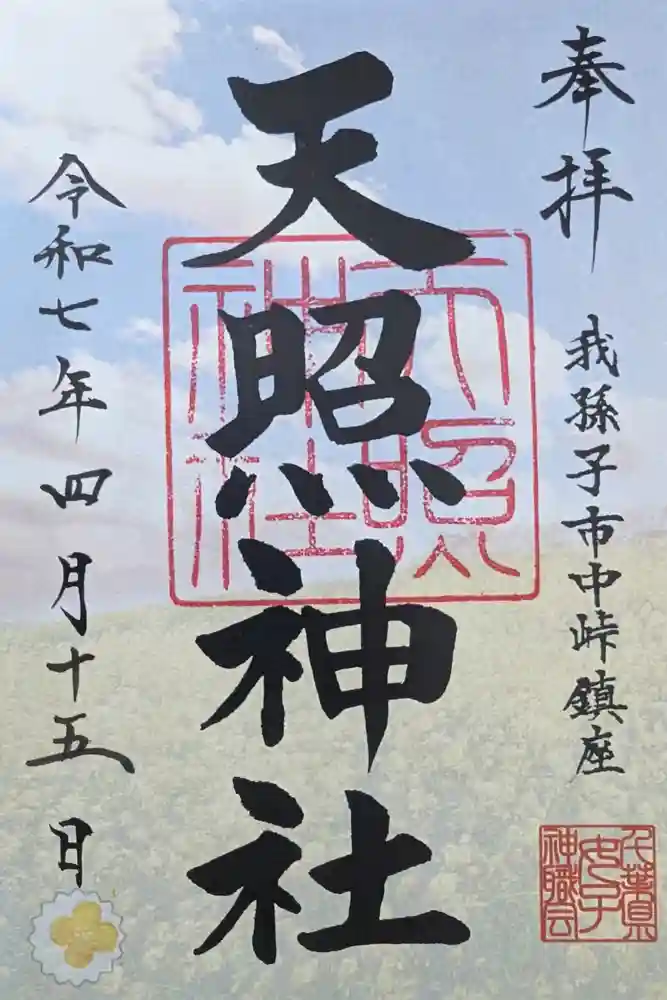 奉拝
我孫子市中峠鎮座
天照神社
天照神社
令和七年四月十五日
千葉県
女子
神職会